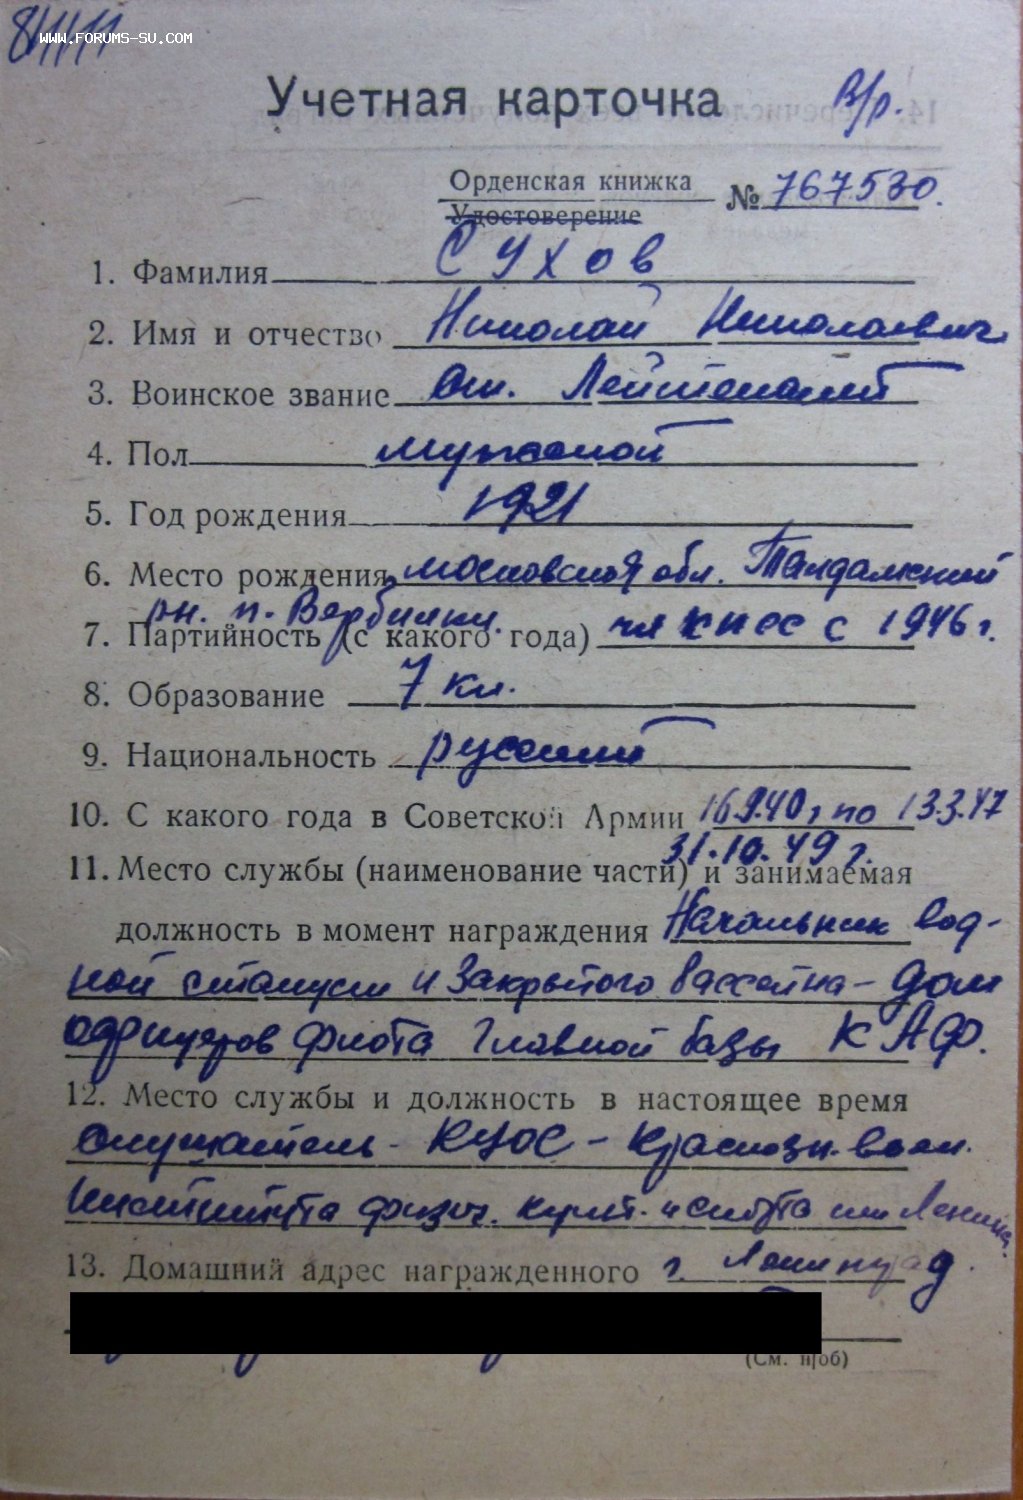 WWW.FORUMS-SU.COM
Учетная карточка
В/р.
Орденская книжка
Удостоверение
№ 767530.
1. Фамилия Сухов
2. Имя и отчество Николай Николаевич
3. Воинское звание Ст. Лейтенант
4. Пол мужской
5. Год рождения 1921
6. Место рождения Московская обл. Талдомский
рн. п. Вербилки.
7. Партийность (с какого года) чл КПСС с 1946 г.
8. Образование 7 кл.
9. Национальность русский
10. С какого года в Советской Армии 16.9.40 г по 13.3.47
31.10.49 г.
11. Место службы (наименование части) и занимаемая
должность в момент награждения Начальник вод-
ной станции и Закрытого бассейна - Дом
офицеров флота Главной базы КАФ.
12. Место службы и должность в настоящее время
слушатель - КУОС - Краснозн. воен.
Института физич. культ. и спорта им Ленина.
13. Домашний адрес награжденного г. Ленинград.
(См. н/об)